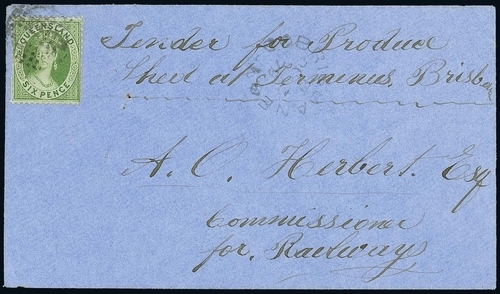 QUEENSLAND
SIX PENCE
Tender for Produce
Shed at Terminus, Brisbane
A. O. Herbert. Esq
Commissioner
for Railways